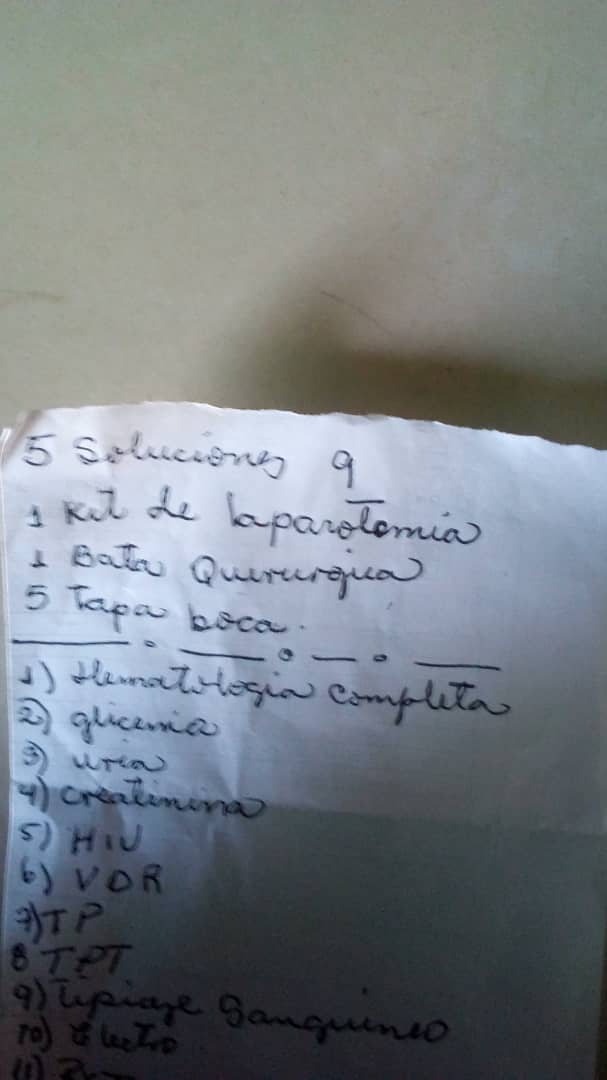 5 Soluciones 9
1 Kit de laparotomia
1 Bata Quirurgica
5 Tapa boca.
1) Hematologia completa
2) glicemia
3) urea
4) creatinina
5) HIV
6) VDR
7) TP
8 TPT
9) tipiaje Sanguineo
10) Electro
11)